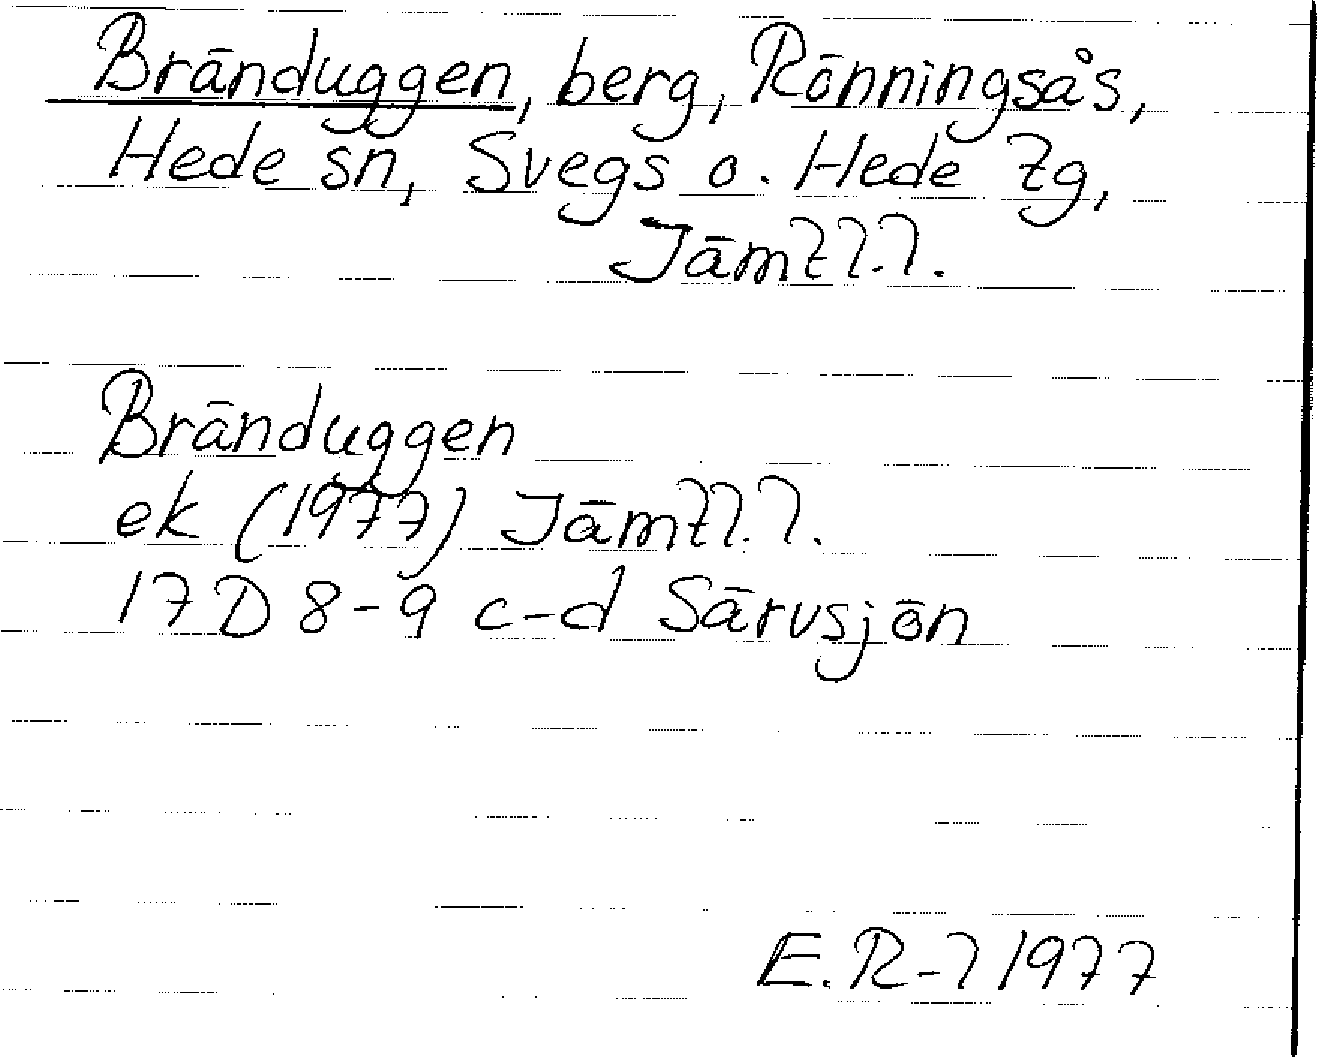 Bränduggen, berg, Rönningsås,
Hede sn, Svegs o. Hede tg,
Jämtl.l.
Bränduggen
ek (1977) Jämtl.l.
17 D 8-9 c-d Särvsjön
E.R-l 1977